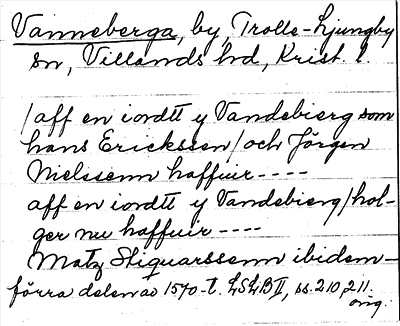 Vanneberga, by, Trolle-Ljungby
sn, Villands hd, Krist. l.
/aff en iordtt y Vandebierg som
hans Erickssen/och Jörgen
Nielssenn haffuir ----
aff en iordtt y Vandebierg/hol-
ger nu haffuir ----
Matz Stiguarssenn ibidem -
förra delen av 1570-t. LSLB II, ss. 210, 211.
orig.